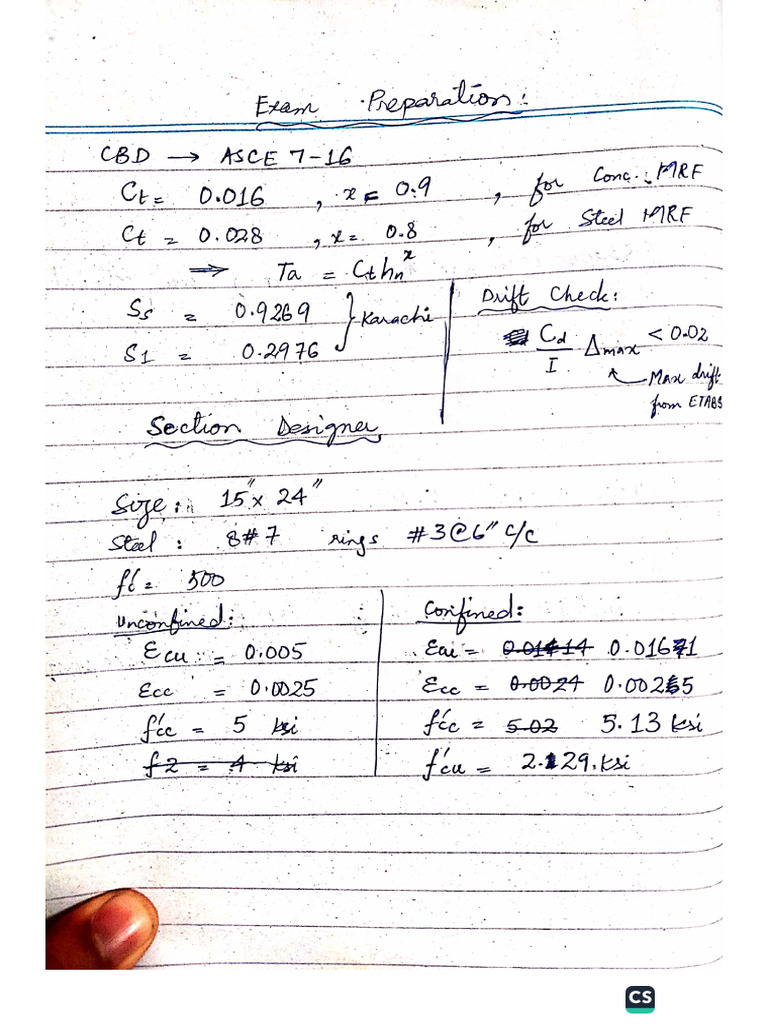 Exam Preparation:
CBD → ASCE 7-16
Ct = 0.016 , x = 0.9 , for Conc. MRF
Ct = 0.028 , x = 0.8 , for Steel MRF
⇒ Ta = Ct hn^x
Ss = 0.9269 } Karachi
S1 = 0.2976
Drift Check:
Cd/I Δmax < 0.02
Max drift
from ETABS
Section Designer
Size: 15" x 24"
Steel: 8#7 rings #3@6" c/c
f'c = 500
Unconfined:
Ecu = 0.005
Ecc = 0.0025
f'cc = 5 ksi
f2 = 4 ksi
Confined:
Ecu = 0.01671
Ecc = 0.00265
f'cc = 5.02 5.13 ksi
f'cu = 2.29 ksi
CS